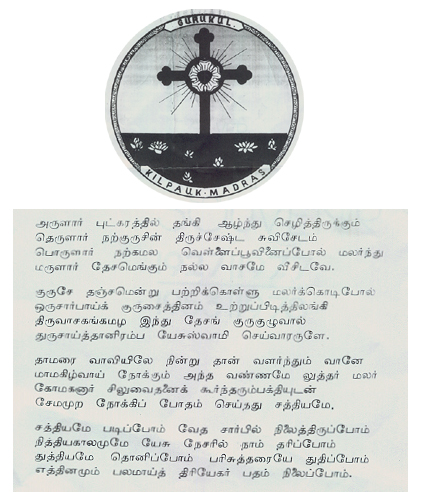 GURUKUL.
KILPAUK-MADRAS
அருளார் புட்கரத்தில் தங்கி ஆழ்ந்து செழித்திருக்கும்
தெருளார் நற்குருசின் திருச்சேஷ்ட சுவிசேடம்
பொருளார் நற்கமல வெள்ளைப்பூவினைப்போல் மலர்ந்து
மருளார் தேசமெங்கும் நல்ல வாசமே வீசிடவே.
குருசே தஞ்சமென்று பற்றிக்கொள்ளு மலர்க்கொடிபோல்
ஒருசார்பாய்க் குருசைத்தினம் உற்றுப்பிடித்திலங்கி
திருவாசகங்கமழ இந்து தேசங் குருகுழுவால்
துருசாய்த்தானிரம்ப யேசுஸ்வாமி செய்வாரருளே.
தாமரை வாவியிலே நின்று தான் வளர்ந்தும் வானே
மாமகிழ்வாய் நோக்கும் அந்த வண்ணமே லுத்தர் மலர்
கோமகனார் சிலுவைதனைக் கூர்ந்தரும்பக்தியுடன்
சேமமுற நோக்கிப் போதம் செய்தது சத்தியமே.
சத்தியமே படிப்போம் வேத சார்பில் நிலைத்திருப்போம்
நித்தியகாலமுமே யேசு நேசரில் நாம் தரிப்போம்
துத்தியமே தொனிப்போம் பரிசுத்தரையே துதிப்போம்
எத்தினமும் பலமாய்த் திரியேகர் பதம் நிலைப்போம்.